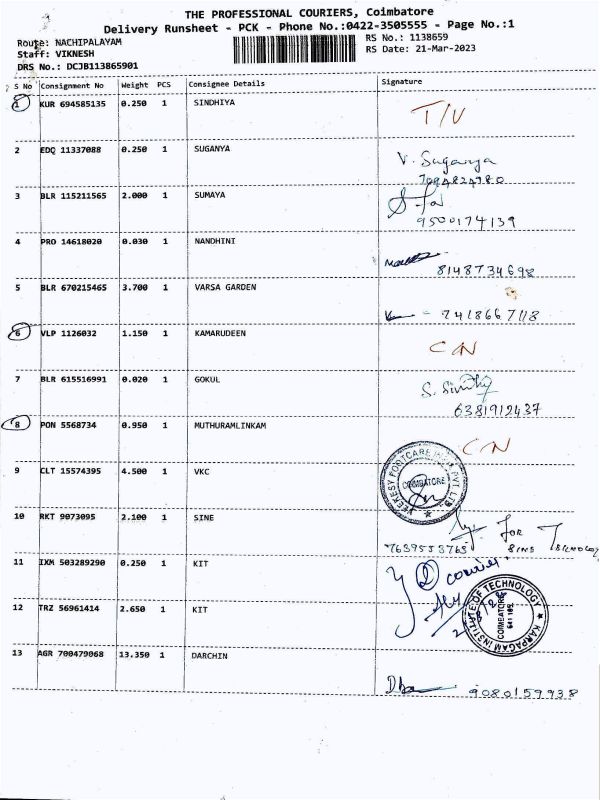 THE PROFESSIONAL COURIERS, Coimbatore
Delivery Runsheet - PCK - Phone No.:0422-3505555 - Page No.:1
Route: NACHIPALAYAM
RS No.: 1138659
Staff: VIKNESH
RS Date: 21-Mar-2023
DRS No.: DCJB113865901
S No Consignment No Weight PCS Consignee Details Signature
1 KUR 694585135 0.250 1 SINDHIYA
2 EDQ 11337088 0.250 1 SUGANYA V. Suganya
7094824980
3 BLR 115211565 2.000 1 SUMAYA
9500174139
4 PRO 14618020 0.030 1 NANDHINI
8148734698
5 BLR 670215465 3.700 1 VARSA GARDEN
7418667118
6 VLP 1126032 1.150 1 KAMARUDEEN CN
7 BLR 615516991 0.020 1 GOKUL
6381912437
8 PON 5568734 0.950 1 MUTHURAMLINKAM CN
9 CLT 15574395 4.500 1 VKC
COIMBATORE
10 RKT 9073095 2.100 1 SINE For
7639553765
11 IXM 503289290 0.250 1 KIT courier
12 TRZ 56961414 2.650 1 KIT
KARPAGAM INSTITUTE OF TECHNOLOGY
COIMBATORE
641 105
13 AGR 700479068 13.350 1 DARCHIN
9080159938